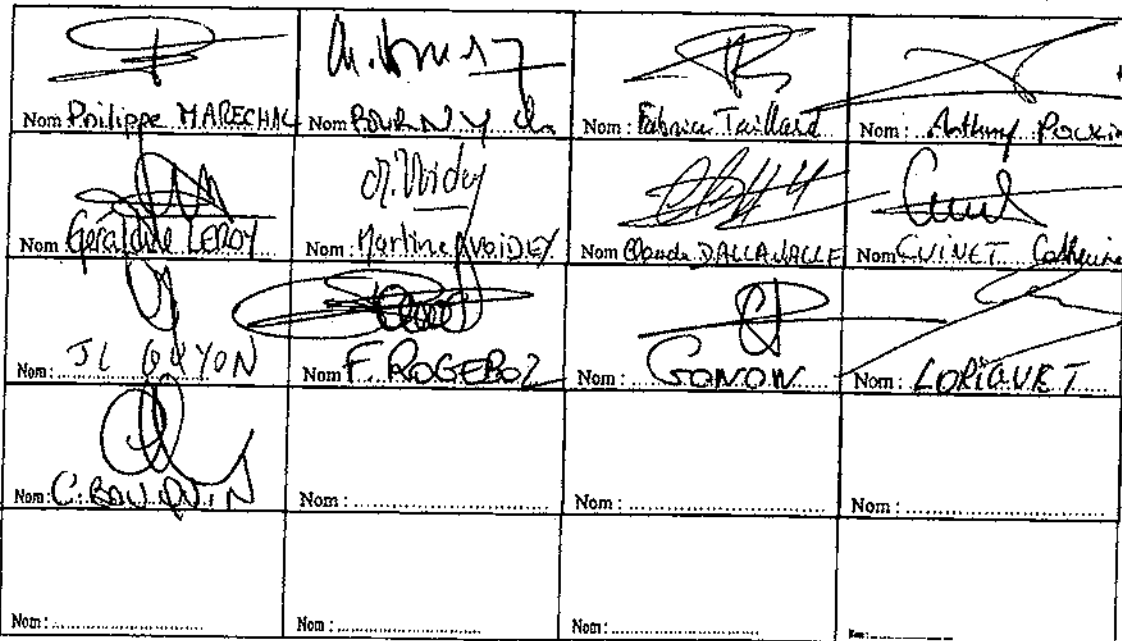 Nom Philippe MARECHAL
Nom BOURNY
Nom : Fabrice Taillard
Nom : Anthony
Nom Géraldine LEROY
Nom : Martine VOIDEY
Nom Claude DALLAVALLE
Nom CUINET Catherine
Nom : JL GUYON
Nom F. ROGEBOZ
Nom : GONON
Nom : LORIQUET
Nom : C. BOURQUIN
Nom : ....................
Nom : ....................
Nom : ....................
Nom : ....................
Nom : ....................
Nom : ....................